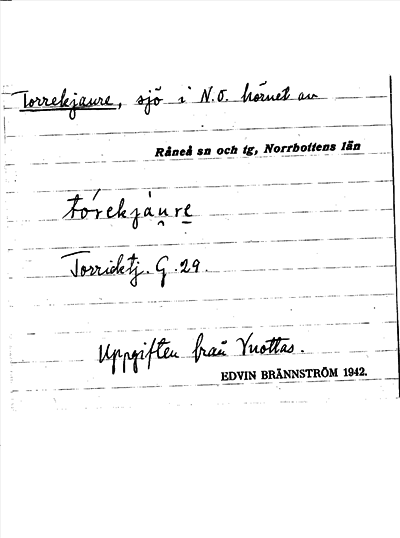 Torrekjaure, sjö i N.O. hörnet av
Råneå sn och tg, Norrbottens län
tórekjáu̯re̲
Torricktj. G. 29.
Uppgiften från Vuottas.
EDVIN BRÄNNSTRÖM 1942.